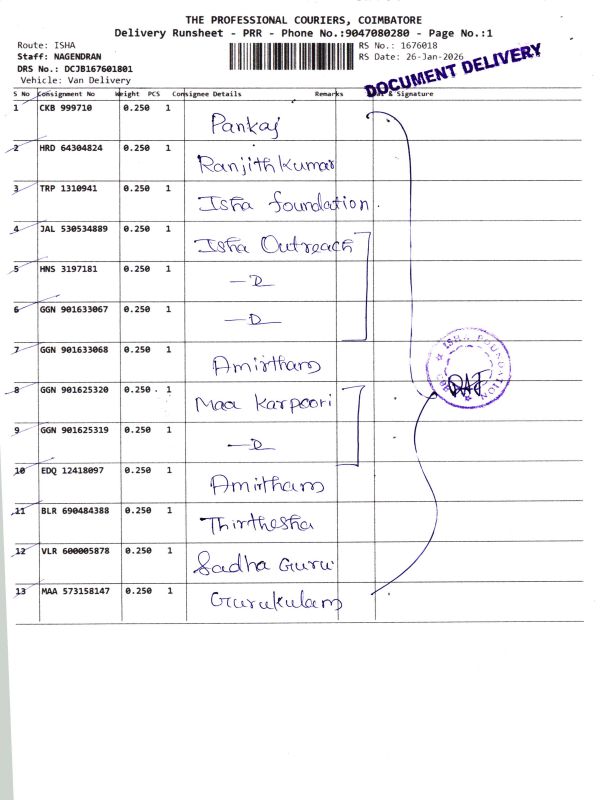 THE PROFESSIONAL COURIERS, COIMBATORE
Delivery Runsheet - PRR - Phone No.:9047080280 - Page No.:1
Route: ISHA
Staff: NAGENDRAN
DRS No.: DCJB167601801
Vehicle: Van Delivery
RS No.: 1676018
RS Date: 26-Jan-2026
DOCUMENT DELIVERY
S No Consignment No Weight PCS Consignee Details Remarks & Signature
1 CKB 999710 0.250 1 Pankaj
2 HRD 64304824 0.250 1 Ranjith Kumar
3 TRP 1310941 0.250 1 Isha foundation.
4 JAL 530534889 0.250 1 Isha Outreach
5 HNS 3197181 0.250 1 —D—
6 GGN 901633067 0.250 1 —D—
7 GGN 901633068 0.250 1 Amirtham
8 GGN 901625320 0.250 1 Maa Karpoori
9 GGN 901625319 0.250 1 —D—
10 EDQ 12418097 0.250 1 Amirtham
11 BLR 690484388 0.250 1 Thirthesha
12 VLR 600005878 0.250 1 Sadha Guru
13 MAA 573158147 0.250 1 Gurukulam
ISHA FOUNDATION